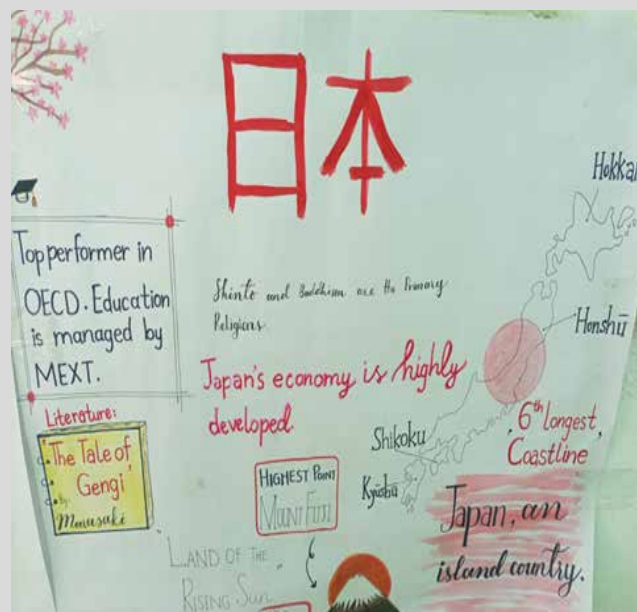 日本
Hokkai
Top performer in
OECD. Education
is managed by
MEXT.
Shinto and Buddhism are the Primary
Religions.
Honshū
Japan's economy is highly
developed.
Literature:
'The Tale of
Gengi'
by:
Murasaki
Shikoku
Kyūshū
6th longest
Coastline
HIGHEST POINT
MOUNT FUJI
Japan, an
island country.
LAND OF THE
RISING SUN